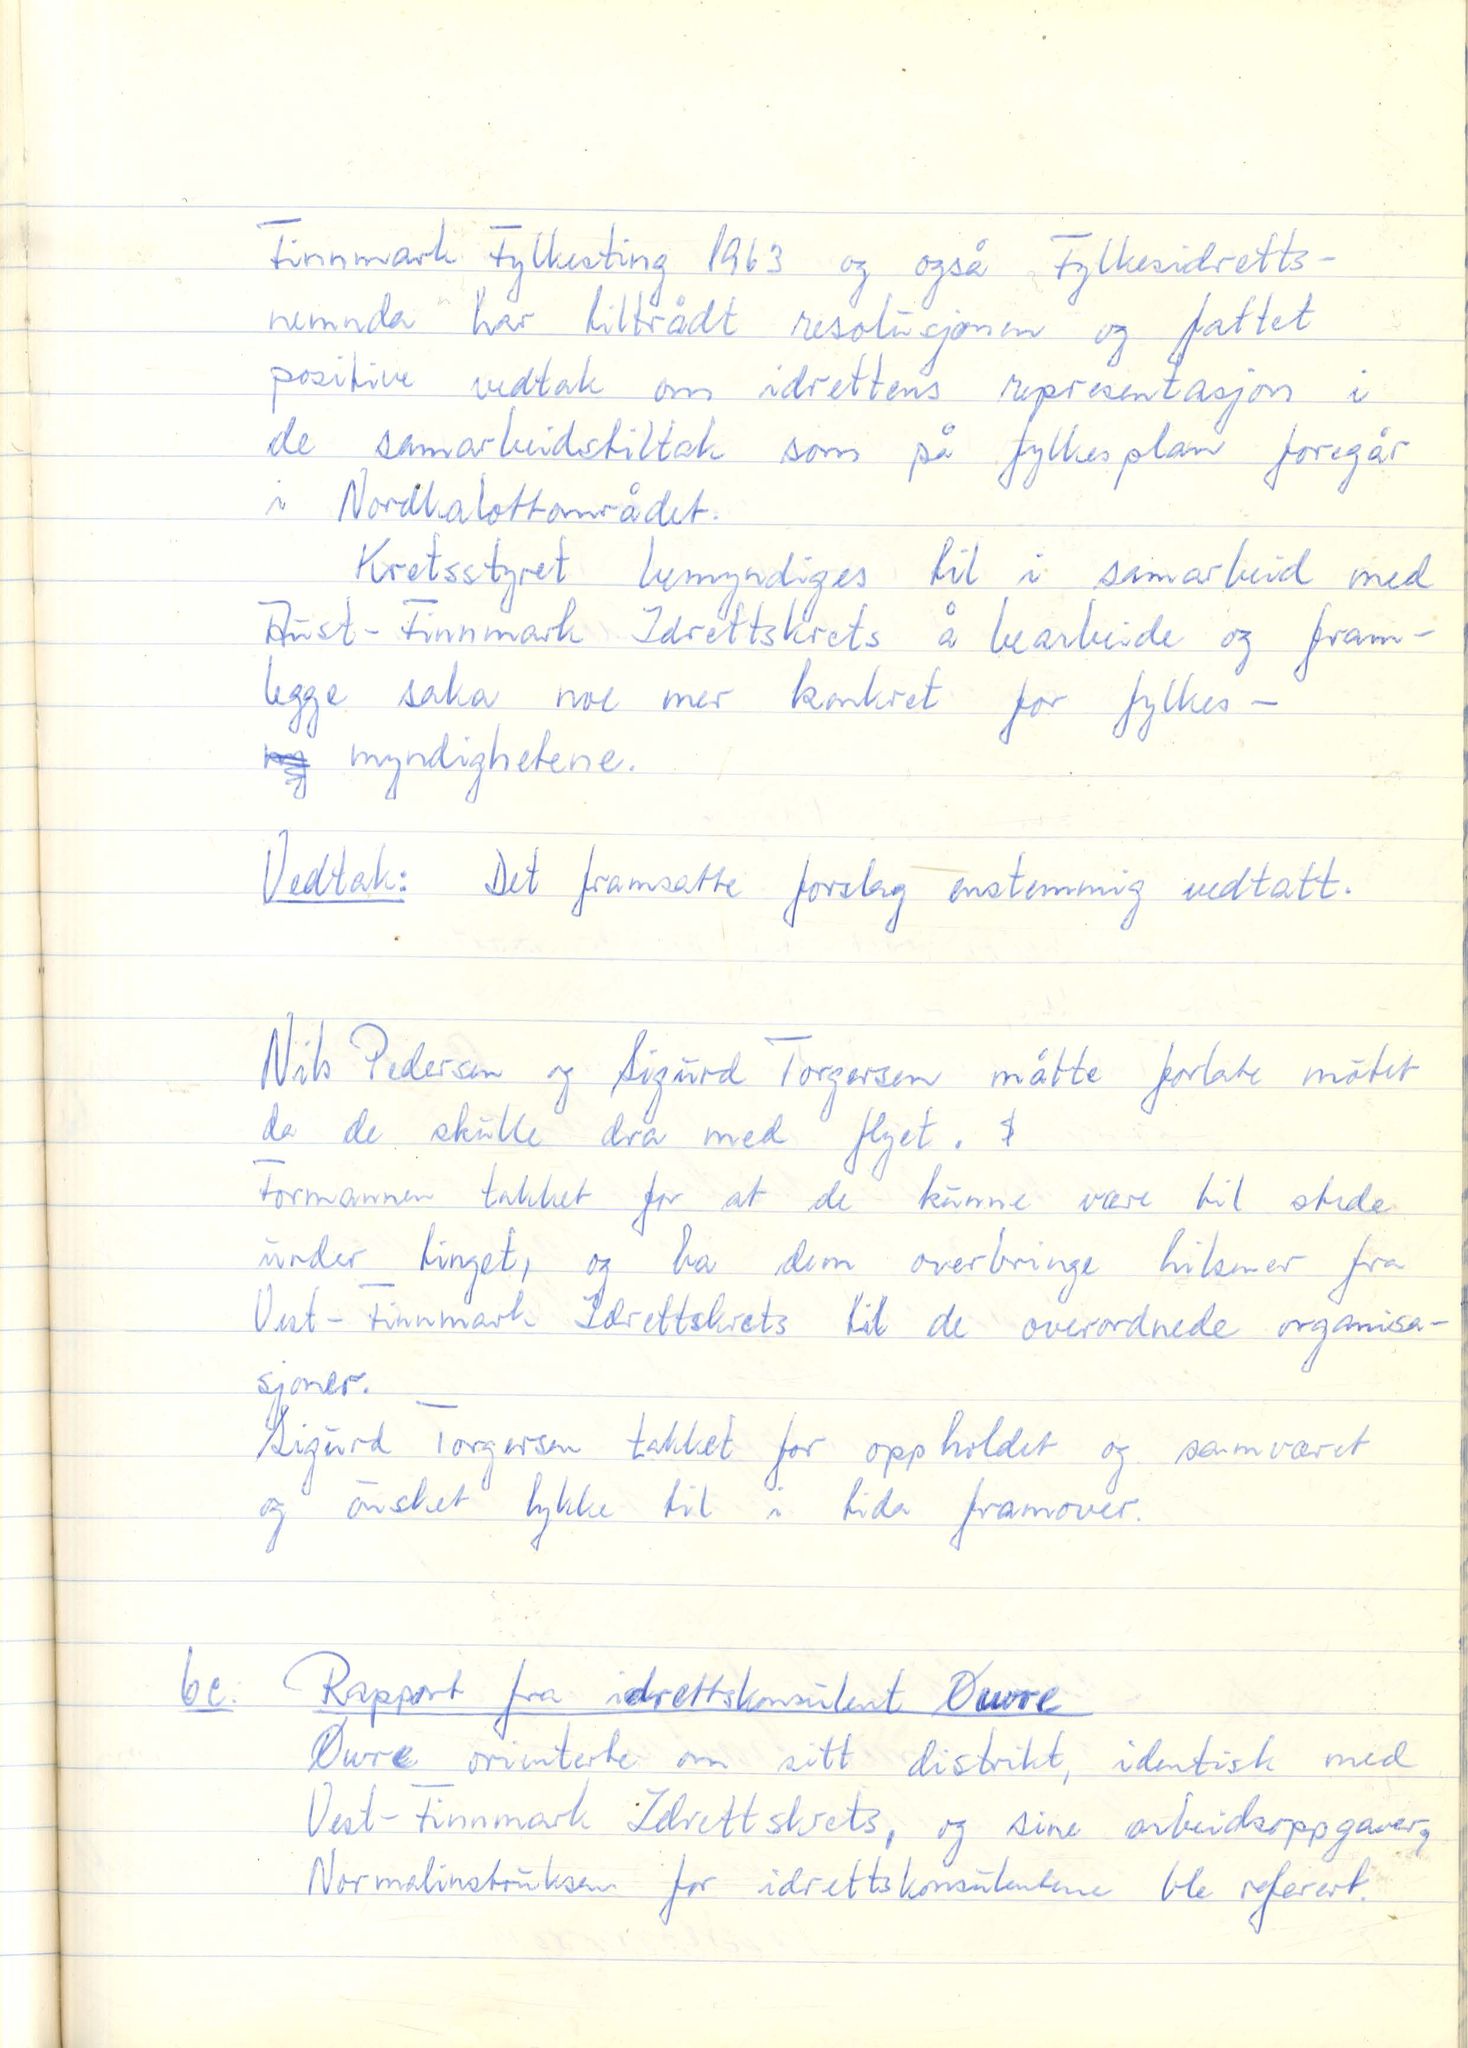 Finnmark Fylkesting 1963 og også Fylkesidretts-
nemnda har tiltrådt resolusjonen og fattet
positive vedtak om idrettens representasjon i
de samarbeidstiltak som på fylkesplan foregår
i Nordkalottområdet.
Kretsstyret bemyndiges til i samarbeid med
Aust-Finnmark Idrettskrets å bearbeide og fram-
legge saka noe mer konkret for fylkes-
myndighetene.
Vedtak: Det framsatte forslag enstemmig vedtatt.
Nils Pedersen og Sigurd Torgersen måtte forlate møtet
da de skulle dra med flyet.
Formannen takket for at de kunne være til stede
under tinget, og ba dem overbringe hilsener fra
Vest-Finnmark Idrettskrets til de overordnede organisa-
sjoner.
Sigurd Torgersen takket for oppholdet og samværet
og ønsket lykke til i tida framover.
6c. Rapport fra idrettskonsulent Øwre
Øwre orienterte om sitt distrikt, identisk med
Vest-Finnmark Idrettskrets, og sine arbeidsoppgaver,
Normalinstruksen for idrettskonsulentene ble referert.